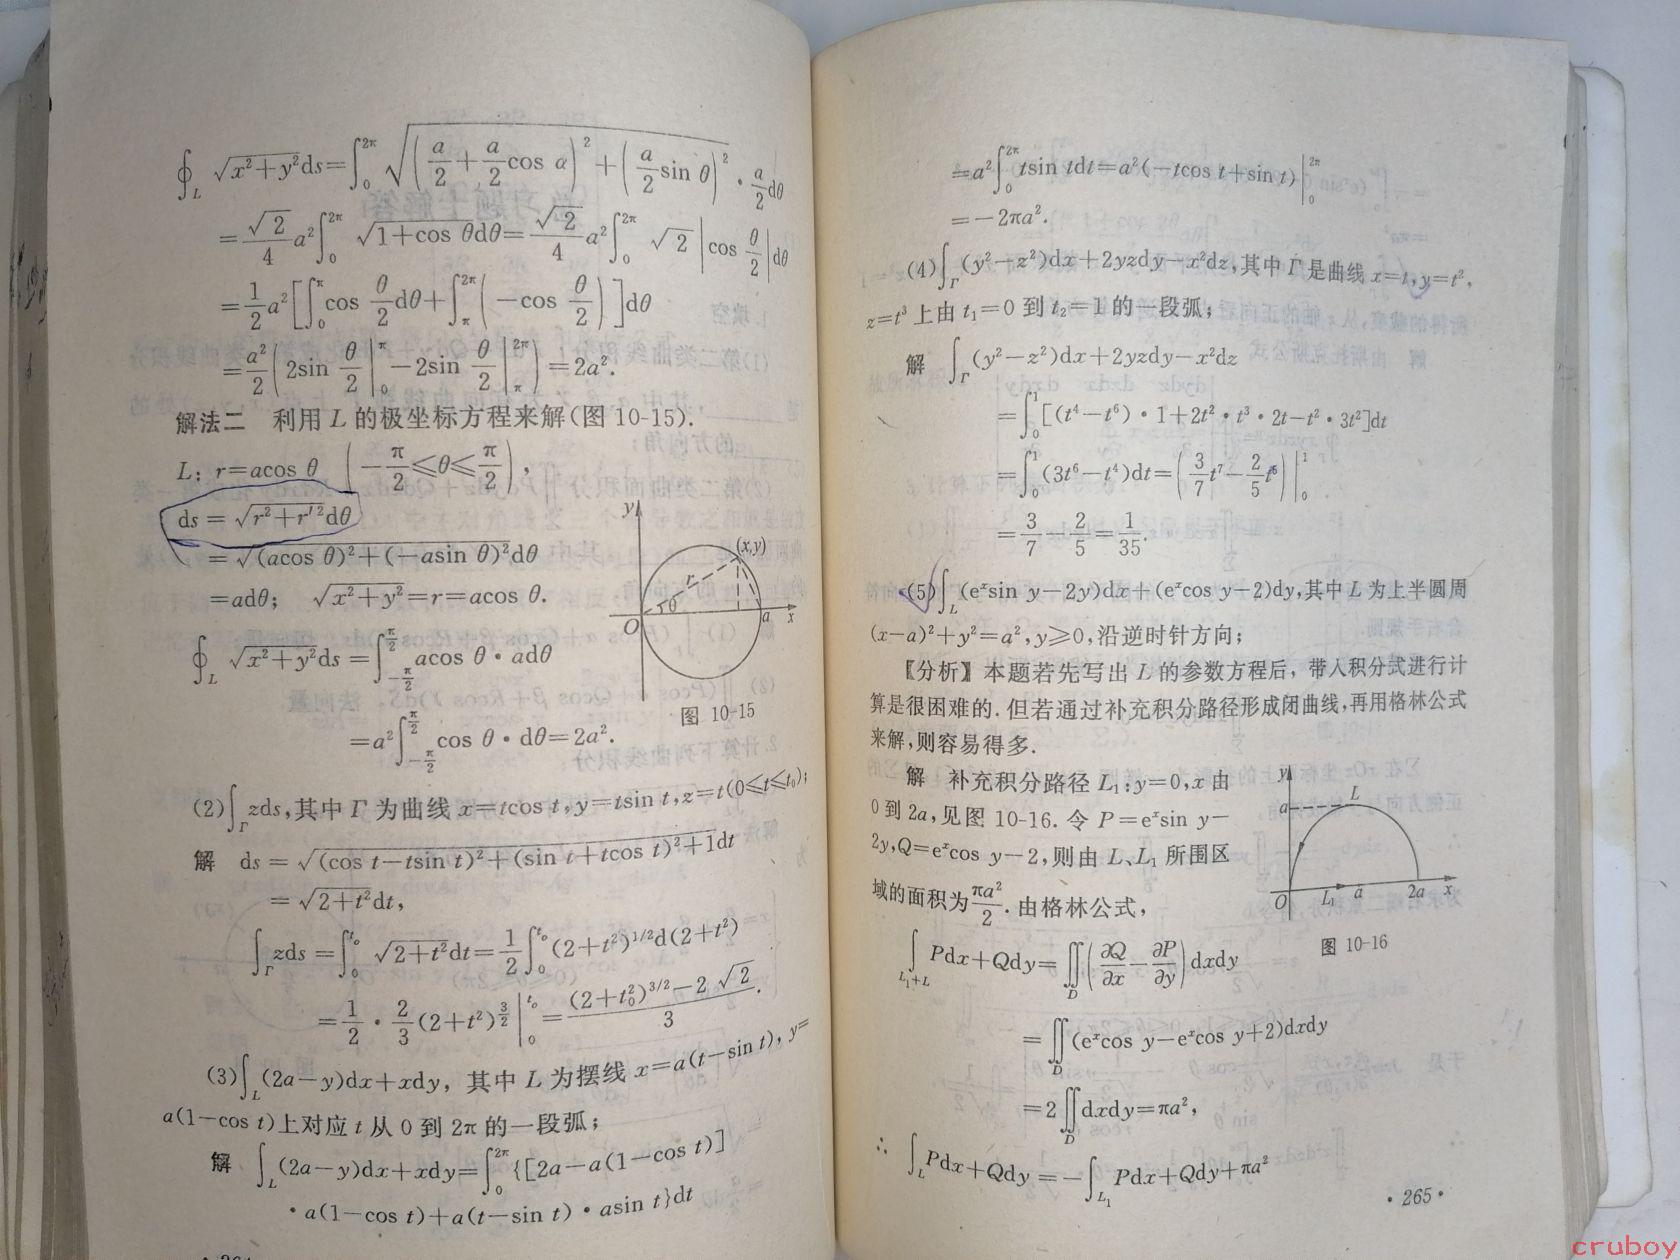 ∮_L √(x²+y²)ds=∫₀^{2π} √((a/2+a/2 cos α)²+(a/2 sin θ)²)·a/2 dθ
=√2/4 a²∫₀^{2π} √(1+cos θ)dθ=√2/4 a²∫₀^{2π} √2|cos θ/2|dθ
=1/2 a²[∫₀^π cos θ/2 dθ+∫_π^{2π}(-cos θ/2)]dθ
=a²/2(2sin θ/2|₀^π-2sin θ/2|_π^{2π})=2a².
解法二 利用 L 的极坐标方程来解(图 10-15).
L: r=acos θ (-π/2≤θ≤π/2),
ds=√(r²+r'²)dθ
=√((acos θ)²+(-asin θ)²)dθ
=adθ; √(x²+y²)=r=acos θ.
∮_L √(x²+y²)ds=∫_{-π/2}^{π/2} acos θ·adθ
=a²∫_{-π/2}^{π/2} cos θ·dθ=2a².
y
(x,y)
r
θ
O
a
x
图 10-15
(2)∫_Γ zds,其中 Γ 为曲线 x=tcos t,y=tsin t,z=t(0≤t≤t₀);
解 ds=√((cos t-tsin t)²+(sin t+tcos t)²+1)dt
=√(2+t²)dt,
∫_Γ zds=∫₀^{t₀} √(2+t²)dt=1/2∫₀^{t₀}(2+t²)^{1/2}d(2+t²)
=1/2·2/3(2+t²)^{3/2}|₀^{t₀}=((2+t₀²)^{3/2}-2√2)/3.
(3)∫_L(2a-y)dx+xdy, 其中 L 为摆线 x=a(t-sin t), y=
a(1-cos t)上对应 t 从 0 到 2π 的一段弧;
解 ∫_L(2a-y)dx+xdy=∫₀^{2π}{[2a-a(1-cos t)]
·a(1-cos t)+a(t-sin t)·asin t}dt
=a²∫₀^{2π}tsin tdt=a²(-tcos t+sin t)|₀^{2π}
=-2πa².
(4)∫_Γ(y²-z²)dx+2yzdy-x²dz,其中 Γ 是曲线 x=t,y=t²,
z=t³上由 t₁=0 到 t₂=1 的一段弧;
解 ∫_Γ(y²-z²)dx+2yzdy-x²dz
=∫₀¹[(t⁴-t⁶)·1+2t²·t³·2t-t²·3t²]dt
=∫₀¹(3t⁶-t⁴)dt=(3/7 t⁷-2/5 t⁵)|₀¹
=3/7-2/5=1/35.
(5)∫_L(eˣsin y-2y)dx+(eˣcos y-2)dy,其中 L 为上半圆周
(x-a)²+y²=a²,y≥0,沿逆时针方向;
〖分析〗本题若先写出 L 的参数方程后，带入积分式进行计
算是很困难的.但若通过补充积分路径形成闭曲线,再用格林公式
来解,则容易得多.
解 补充积分路径 L₁:y=0,x 由
0 到 2a,见图 10-16. 令 P=eˣsin y-
2y,Q=eˣcos y-2,则由 L、L₁ 所围区
域的面积为πa²/2.由格林公式,
y
a
L
O
L₁
a
2a
x
图 10-16
∫_{L₁+L} Pdx+Qdy=∬_D(∂Q/∂x-∂P/∂y)dxdy
=∬_D(eˣcos y-eˣcos y+2)dxdy
=2∬_D dxdy=πa²,
∴ ∫_L Pdx+Qdy=-∫_{L₁} Pdx+Qdy+πa²
·265·
cruboy